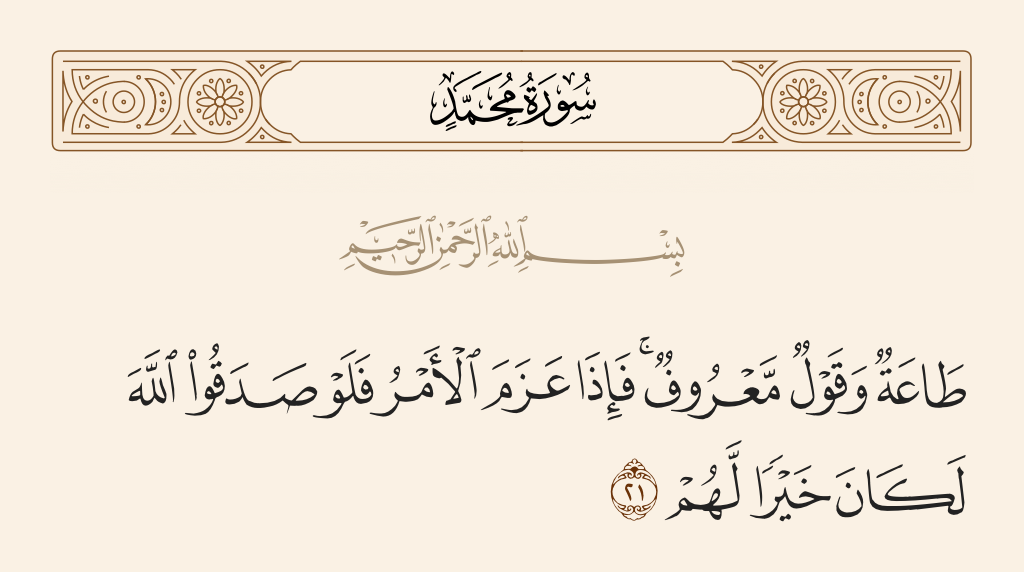 سُورَةُ مُحَمَّدٍ
بِسْمِ ٱللَّهِ ٱلرَّحْمَٰنِ ٱلرَّحِيمِ
طَاعَةٌ وَقَوْلٌ مَّعْرُوفٌ ۚ فَإِذَا عَزَمَ ٱلْأَمْرُ فَلَوْ صَدَقُوا۟ ٱللَّهَ
لَكَانَ خَيْرًا لَّهُمْ ٢١